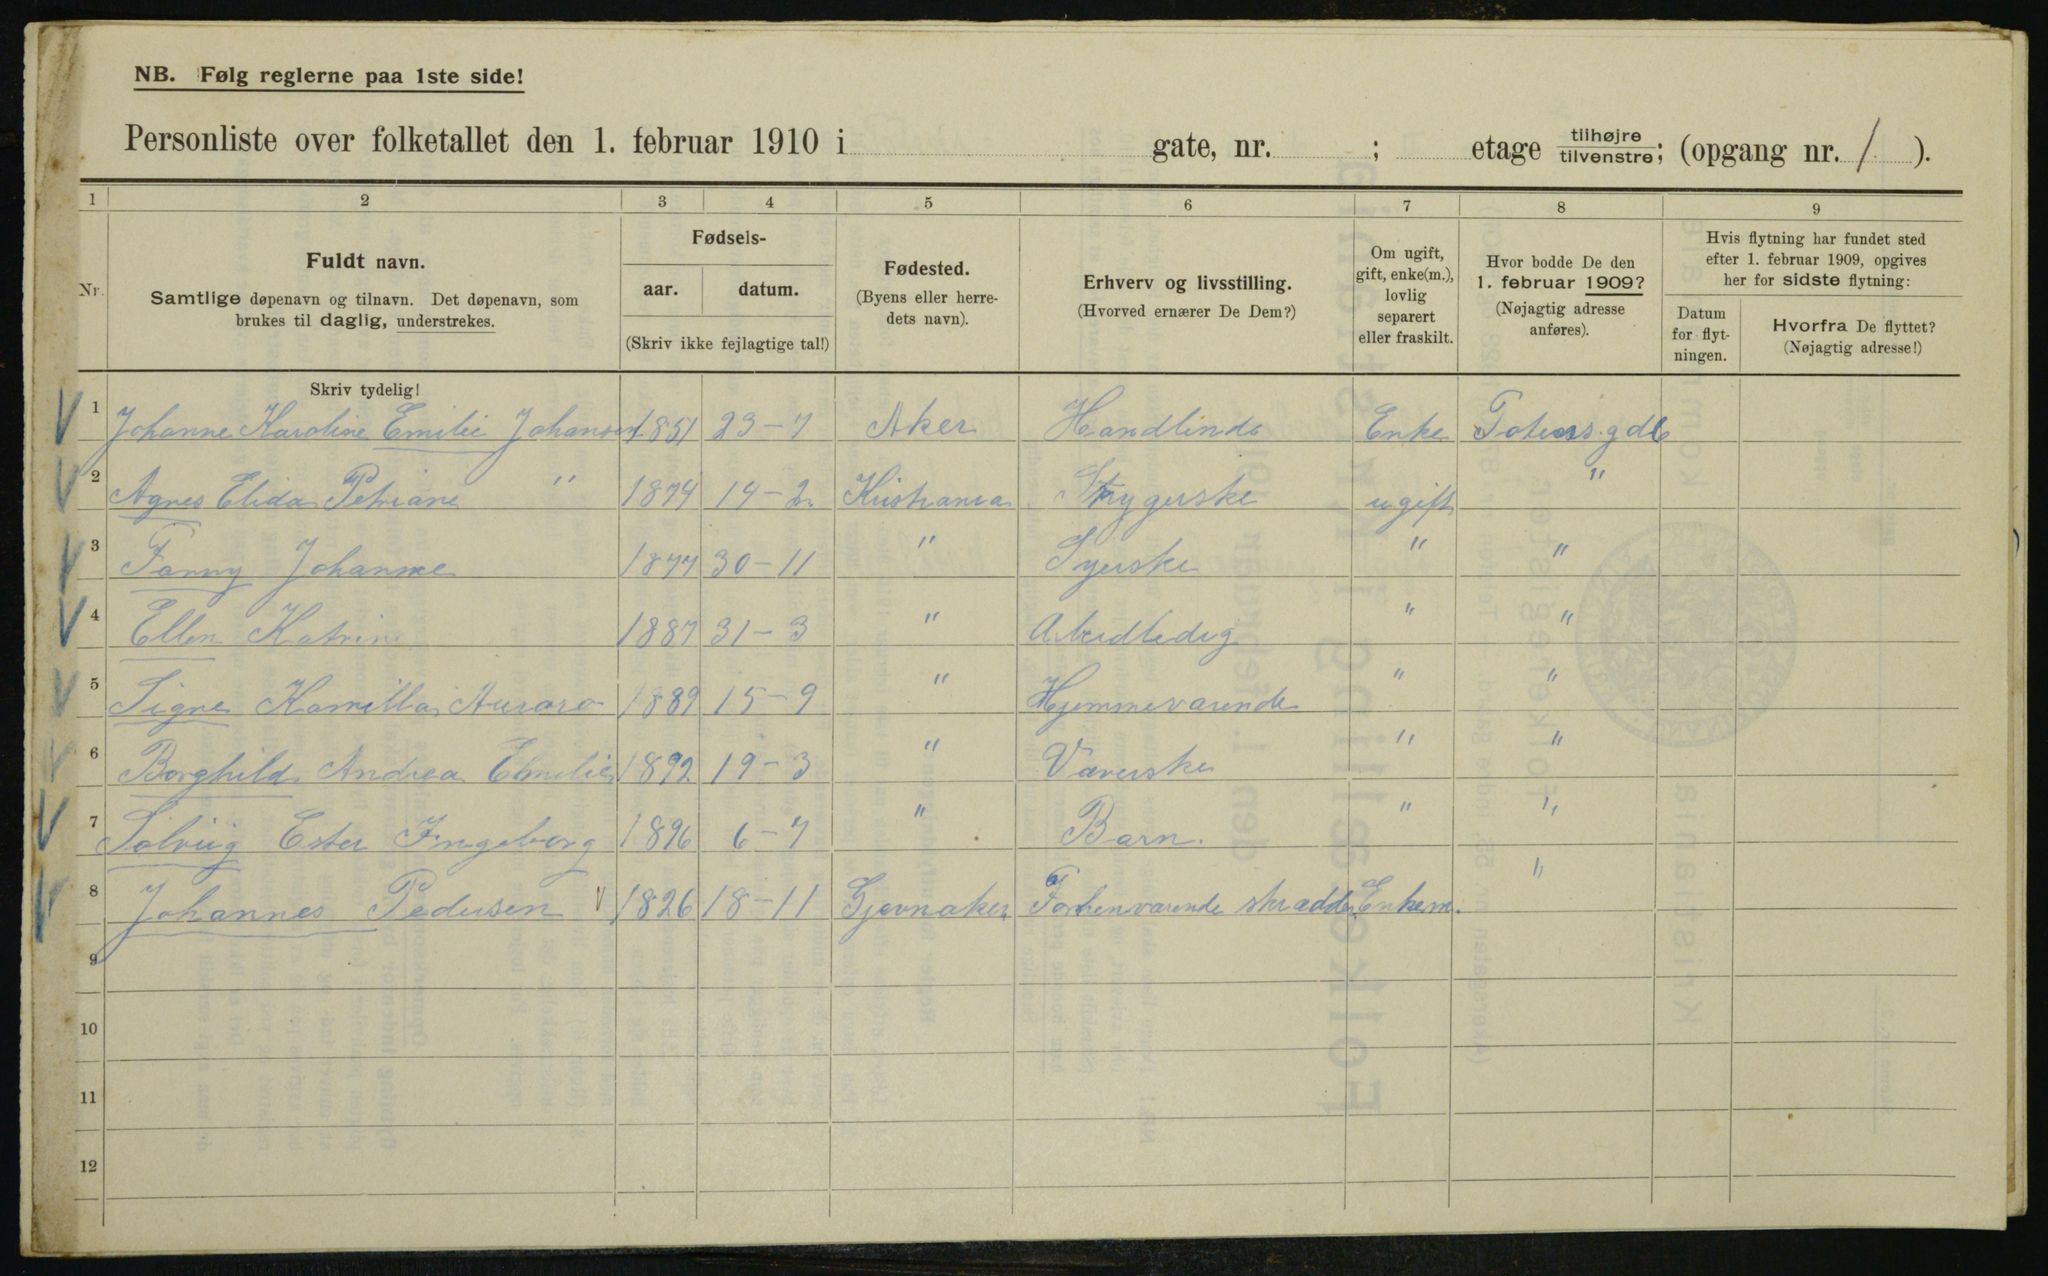 NB. Følg reglerne paa 1ste side!
Personliste over folketallet den 1. februar 1910 i gate, nr. ; etage tilhøjre/tilvenstre; (opgang nr. 1 ).
1 2 3 4 5 6 7 8 9
Nr.
Fuldt navn.
Samtlige døpenavn og tilnavn. Det døpenavn, som
brukes til daglig, understrekes.
Skriv tydelig!
Fødsels-
aar. datum.
(Skriv ikke fejlagtige tal!)
Fødested.
(Byens eller herre-
dets navn).
Erhverv og livsstilling.
(Hvorved ernærer De Dem?)
Om ugift,
gift, enke(m.),
lovlig
separert
eller fraskilt.
Hvor bodde De den
1. februar 1909?
(Nøjagtig adresse
anføres).
Hvis flytning har fundet sted
efter 1. februar 1909, opgives
her for sidste flytning:
Datum
for flyt-
ningen.
Hvorfra De flyttet?
(Nøjagtig adresse!)
1 Johanne Karoline Emilie Johansen 1851 23-7 Aker Handlinde Enke
2 Agnes Elida Petriane " 1874 14-2 Kristiania Strygerske ugift "
3 Fanny Johanne 1877 30-11 " Syerske " "
4 Ellen Katrine 1887 31-3 " Arbeidledig " "
5 Signe Kamilla Aurora 1889 15-9 " Hjemmeværende " "
6 Borghild Andrea Emilie 1892 19-3 " Væverske " "
7 Solveig Ester Ingeborg 1896 6-7 " Barn. " "
8 Johannes Pedersen 1826 18-11 Gjevnaker Forhenværende skrædder Enkem. "
9
10
11
12